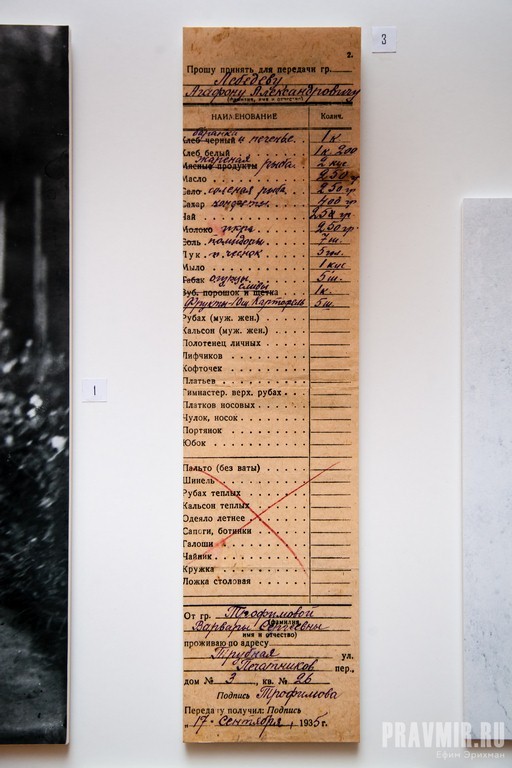 3
2.
Прошу принять для передачи гр.
Лебедеву
Агафону Александровичу
(фамилия, имя и отчество)
НАИМЕНОВАНИЕ Колич.
баранки
Хлеб черный и печенье 1 к
Хлеб белый 1 к 200
жареная
Мясные продукты рыба. 2 кус
Масло 250 гр
Сало соленая рыба 250 гр
Сахар 400 гр
Чай 25 гр.
Молоко икры 250 гр.
Соль помидоры. 7 ш.
Лук и чеснок
Мыло 1 кус
Табак огурцы 5 ш.
сливы
Зуб. порошок и щетка 1 к.
Фрукты 10 ш Картофель 5 ш
Рубах (муж. жен.)
Кальсон (муж. жен.)
Полотенец личных
Лифчиков
Кофточек
Платьев
Гимнастер. верх. рубах
Платков носовых
Чулок, носок
Портянок
Юбок
Пальто (без ваты)
Шинель
Рубах теплых
Кальсон теплых
Одеяло летнее
Сапоги, ботинки
Галоши
Чайник
Кружка
Ложка столовая
1
От гр. Трофимовой
(фамилия,
Варвары Сергеевны
имя и отчество)
проживаю по адресу
Трубная ул.
Печатников пер.,
дом № 3, кв. № 26
Подпись Трофимова
Передачу получил: Подпись
„17" сентября, 1935 г.
PRAVMIR.RU
Ефим Эрихман